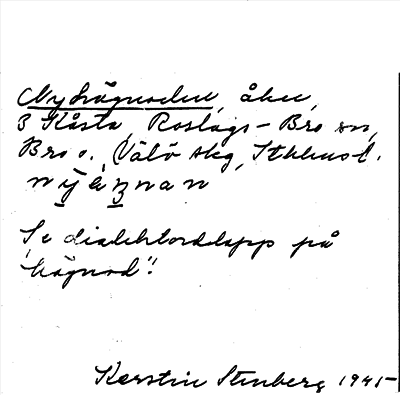 Nyhägnaden, åker,
3 Kårsta, Roslags-Bro sn,
Bro o. Vätö skg, Sthlms l.
Se dialektordslapp på
"hägnad".
Kerstin Stenberg 1945